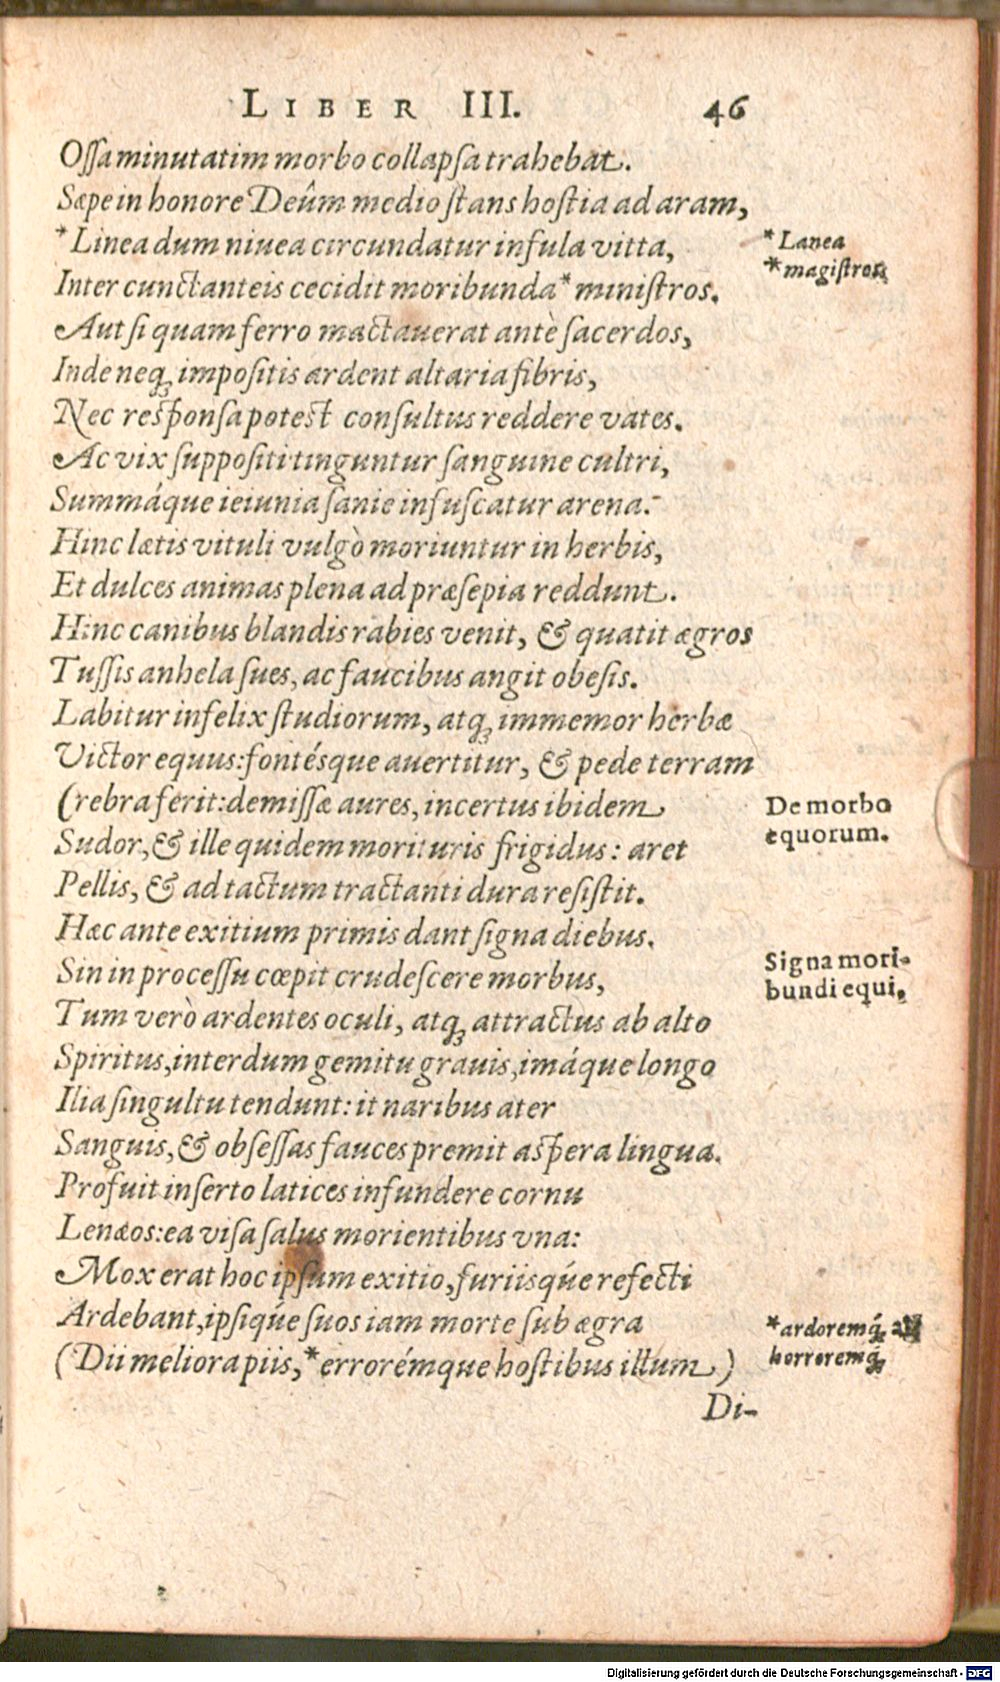 LIBER III. 46
Ossa minutatim morbo collapsa trahebat.
Sæpe in honore Deûm medio stans hostia ad aram,
*Linea dum niuea circundatur infula vitta,
*Lanea
Inter cunctanteis cecidit moribunda* ministros.
*magistros
Aut si quam ferro mactauerat antè sacerdos,
Inde neq; impositis ardent altaria fibris,
Nec responsa potest consultus reddere vates.
Ac vix suppositi tinguntur sanguine cultri,
Summáque ieiunia sanie infuscatur arena.
Hinc lætis vituli vulgò moriuntur in herbis,
Et dulces animas plena ad præsepia reddunt.
Hinc canibus blandis rabies venit, & quatit ægros
Tussis anhela sues, ac faucibus angit obesis.
Labitur infelix studiorum, atq; immemor herbæ
Victor equus: fontésque auertitur, & pede terram
Crebra ferit: demissæ aures, incertus ibidem
De morbo
Sudor, & ille quidem morituris frigidus: aret
equorum.
Pellis, & ad tactum tractanti dura resistit.
Hæc ante exitium primis dant signa diebus.
Sin in processu cœpit crudescere morbus,
Signa mori-
bundi equi.
Tum verò ardentes oculi, atq; attractus ab alto
Spiritus, interdum gemitu grauis, imáque longo
Ilia singultu tendunt: it naribus ater
Sanguis, & obsessas fauces premit aspera lingua.
Profuit inserto latices infundere cornu
Lenæos: ea visa salus morientibus vna:
Mox erat hoc ipsum exitio, furiisqúe refecti
Ardebant, ipsiqúe suos iam morte sub ægra
*ardoremq́;
(Dii meliora piis, *errorémque hostibus illum)
horroremq́;
Di-
Digitalisierung gefördert durch die Deutsche Forschungsgemeinschaft - DFG